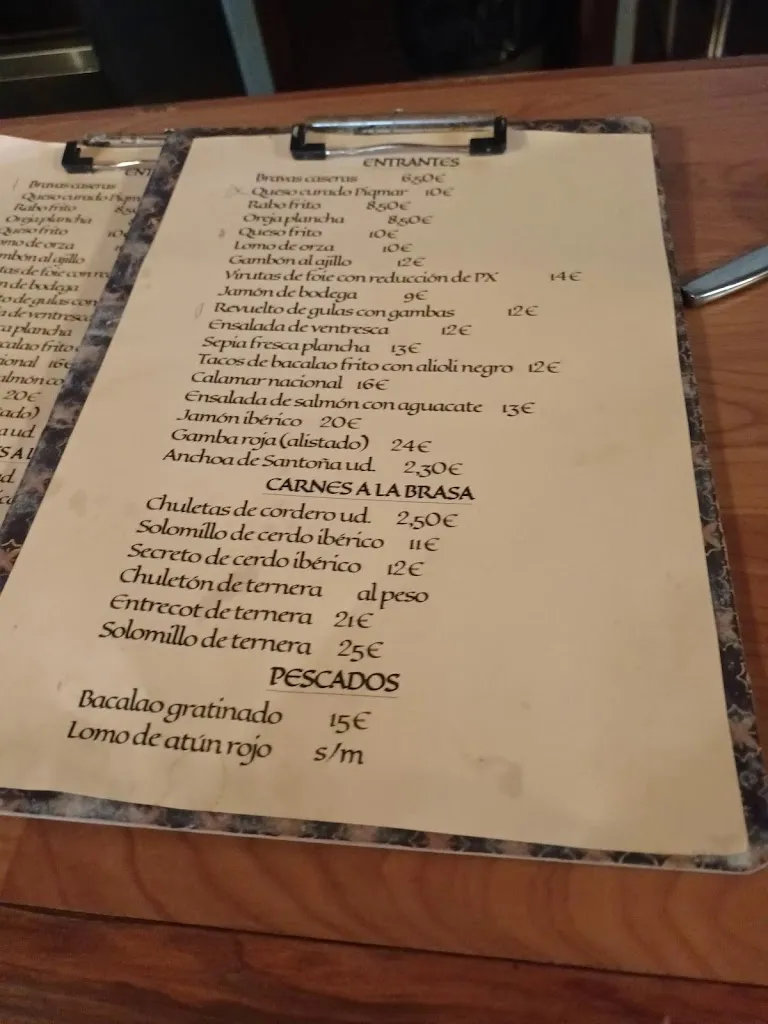 ENTRANTES
Bravas caseras 6,50€
Queso curado Piqmar 10€
Rabo frito 8,50€
Oreja plancha 8,50€
Queso frito 10€
Lomo de orza 10€
Gambón al ajillo 12€
Virutas de foie con reducción de PX 14€
Jamón de bodega 9€
Revuelto de gulas con gambas 12€
Ensalada de ventresca 12€
Sepia fresca plancha 13€
Tacos de bacalao frito con alioli negro 12€
Calamar nacional 16€
Ensalada de salmón con aguacate 13€
Jamón ibérico 20€
Gamba roja (alistado) 24€
Anchoa de Santoña ud. 2,30€
CARNES A LA BRASA
Chuletas de cordero ud. 2,50€
Solomillo de cerdo ibérico 11€
Secreto de cerdo ibérico 12€
Chuletón de ternera al peso
Entrecot de ternera 21€
Solomillo de ternera 25€
PESCADOS
Bacalao gratinado 15€
Lomo de atún rojo s/m
Bravas caseras
Queso curado Piqm
Rabo frito 8,50
Oreja plancha
Queso frito 10